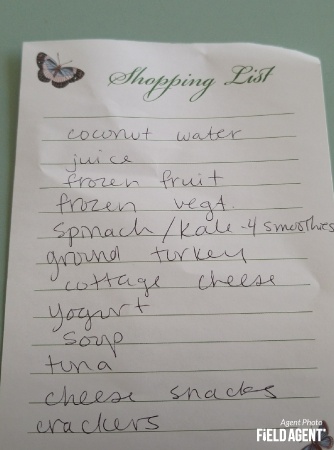 Shopping List
coconut water
juice
frozen fruit
frozen vegt.
Spinach/Kale-4 smoothies
ground turkey
cottage cheese
yogurt
soup
tuna
cheese snacks
crackers
Agent Photo
FiELD AGENT